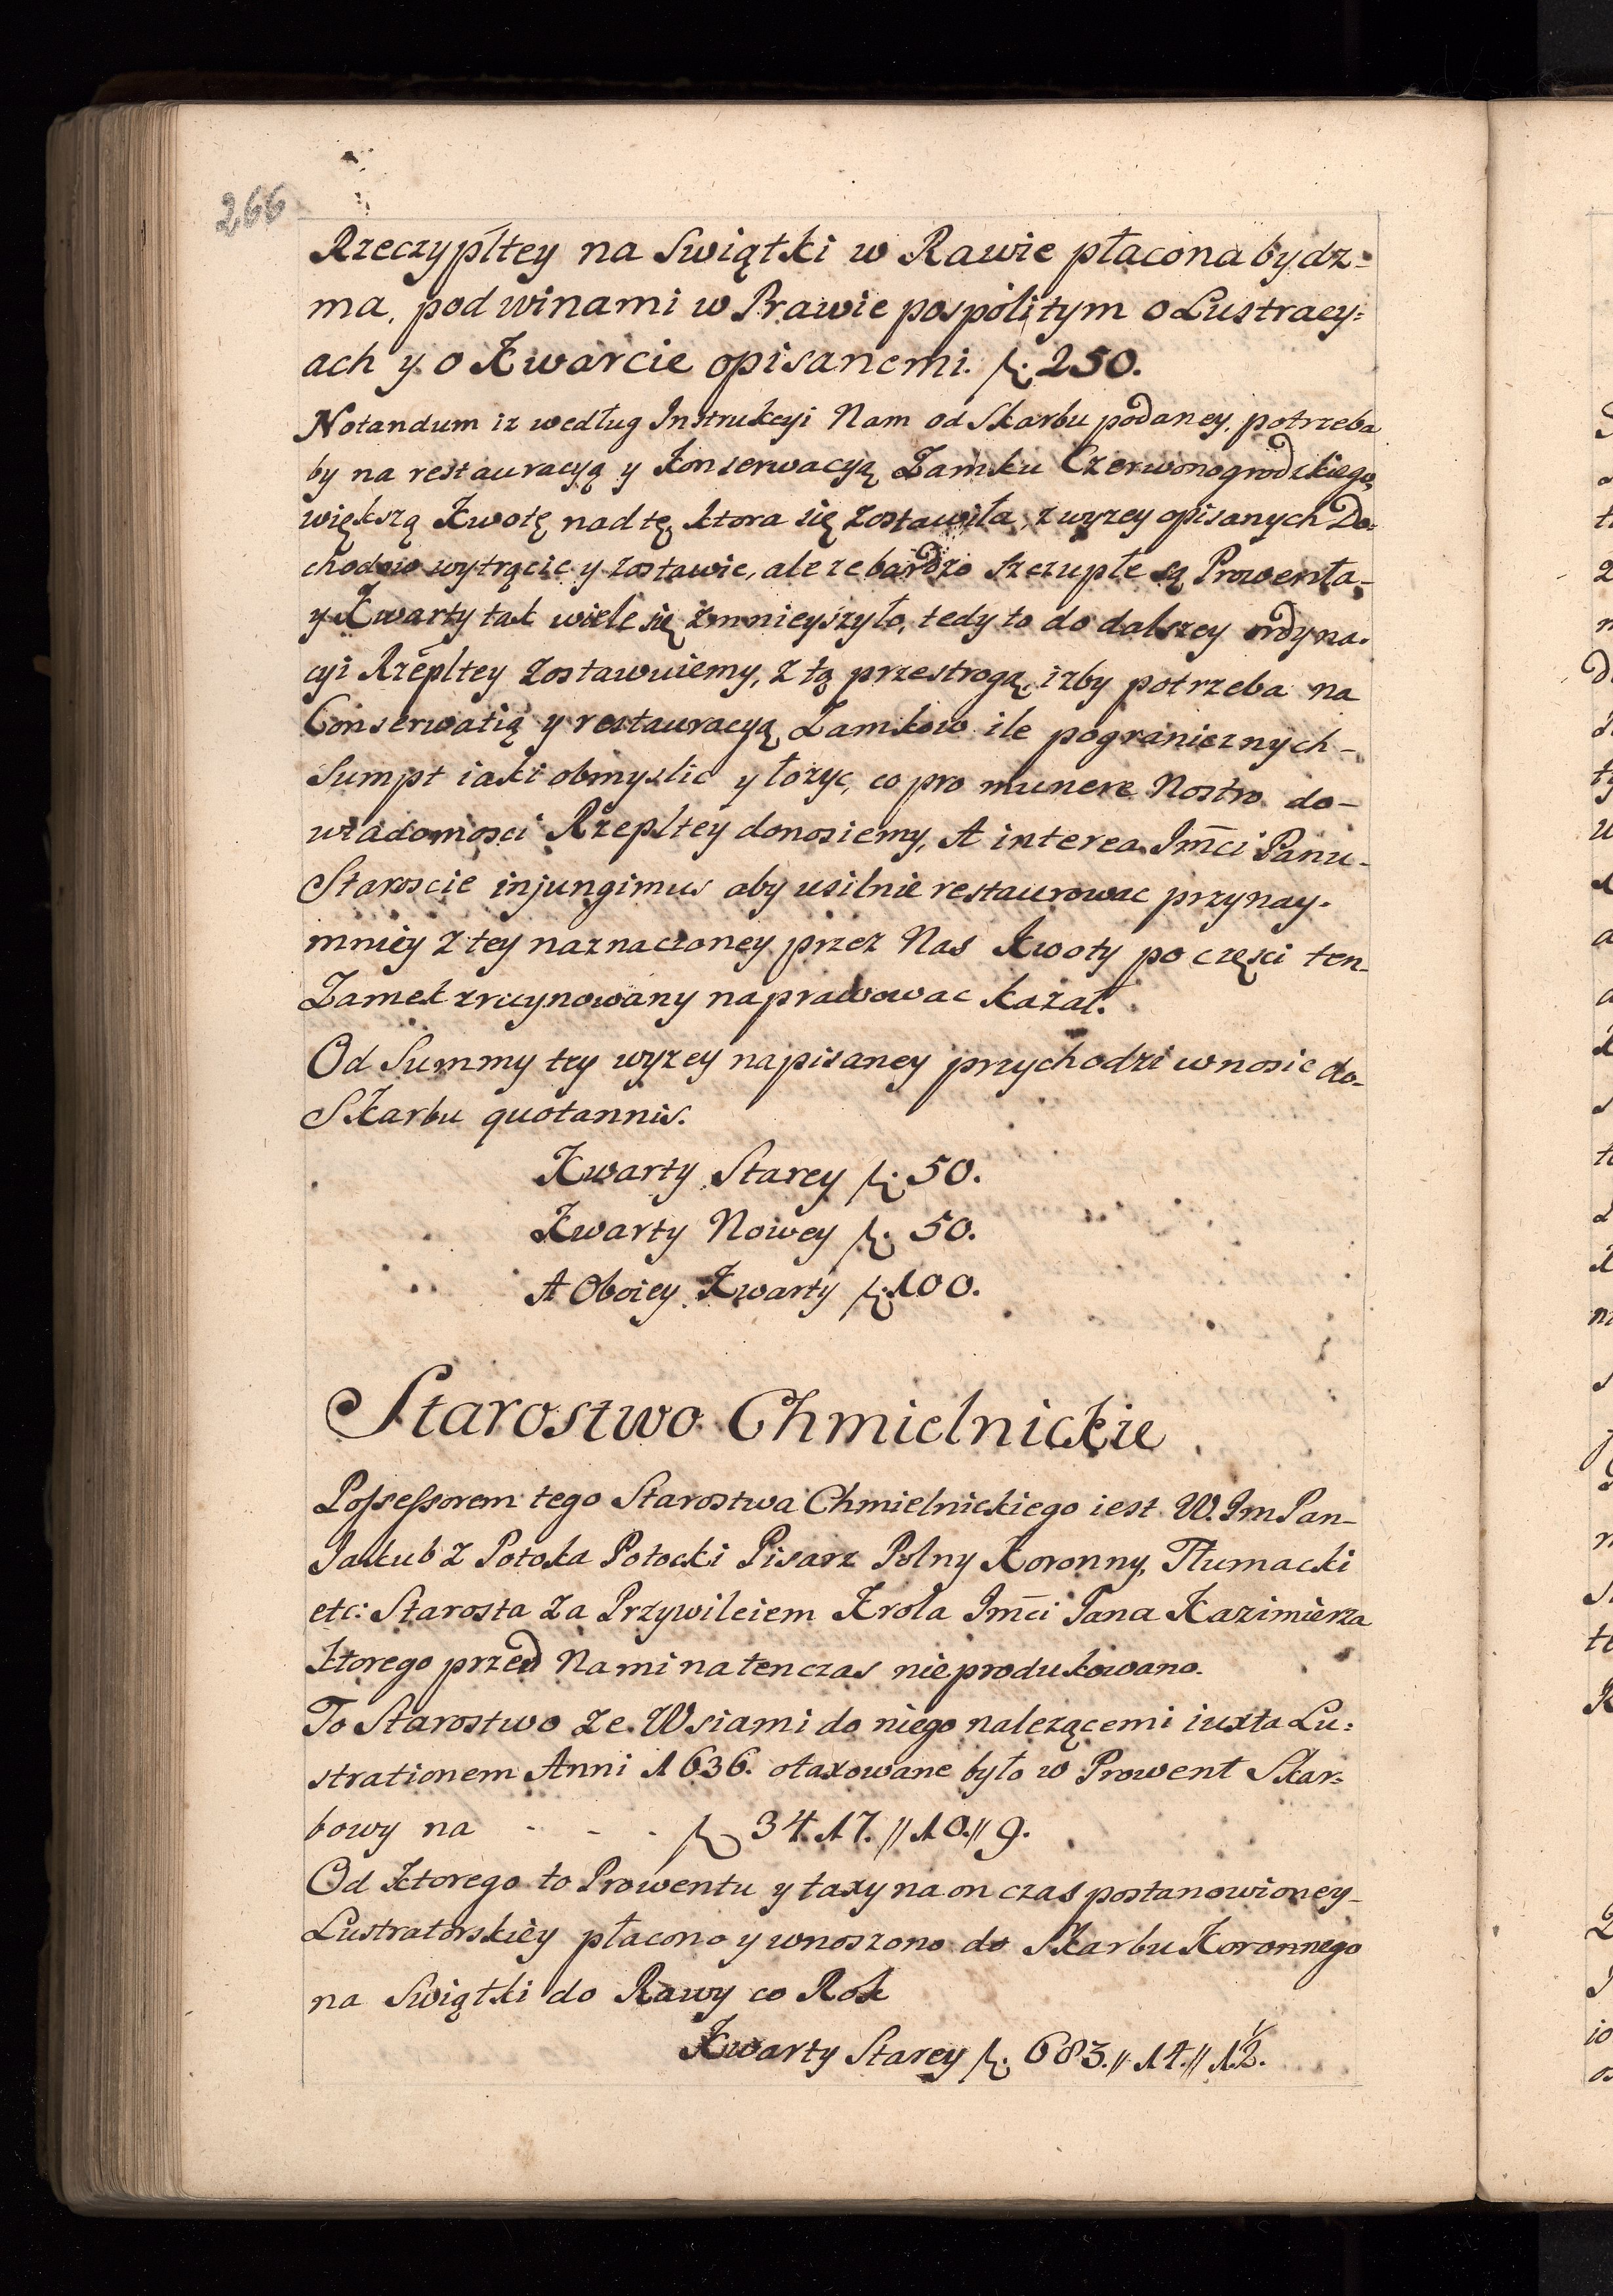 266
Rzeczypltey na Swiątki w Rawie płacona bydz=
ma, pod winami w Prawie pospolitym o Lustracy=
ach y o Kwarcie opisanemi. fl. 250.
Notandum iz według Instrukcyi Nam od Skarbu podaney, potrzeba
by na restauracyą y Konserwacyą Zamku Czerwonogrodzkiego,
większą Kwotę nad tę, ktora się zostawiła, z wyzey opisanych Do=
chodow wytrącic y zostawic, ale ze bardzo szczupłe są Prowenta-
y Kwarty tak wiele się zmnieyszyło, tedy to do dalszey ordyna=
cyi Rzepltey zostawuiemy, z tą przestrogą, izby potrzeba na
Conserwatią y restauracyą Zamkow ile pogranicznych-
Sumpt iaki obmyslic y łozyc, co pro munere Nostro do-
wiadomosci Rzepltey donosiemy, A interea Imci Panu-
Staroscie injungimus aby usilnie restaurowac przynay-
mniey z tey naznaczoney przez Nas Kwoty po częsci ten-
Zamek zruynowany naprawowac kazał.
Od Summy tey wyzey napisaney przychodzi wnosic do-
Skarbu quotannis.
Kwarty Starey fl. 50.
Kwarty Nowey fl. 50.
A Oboiey Kwarty fl. 100.
Starostwo Chmielnickie
Possessorem tego Starostwa Chmielnickiego iest W. Im Pan-
Jakub z Potoka Potocki Pisarz Polny Koronny, Tłumacki
etc: Starosta za Przywileiem Krola Imci Jana Kazimierza
ktorego przed Nami natenczas nie produkowano.
To Starostwo ze Wsiami do niego nalezącemi iuxta Lu=
strationem Anni 1636. otaxowane było w Prowent Skar=
bowy na - - - fl 3417.//10.//9.
Od ktorego to Prowentu y taxy na on czas postanowioney-
Lustratorskiey płacono y wnoszono do Skarbu Koronnego
na Swiątki do Rawy co Rok
Kwarty Starey fl. 683.//14.//1½.